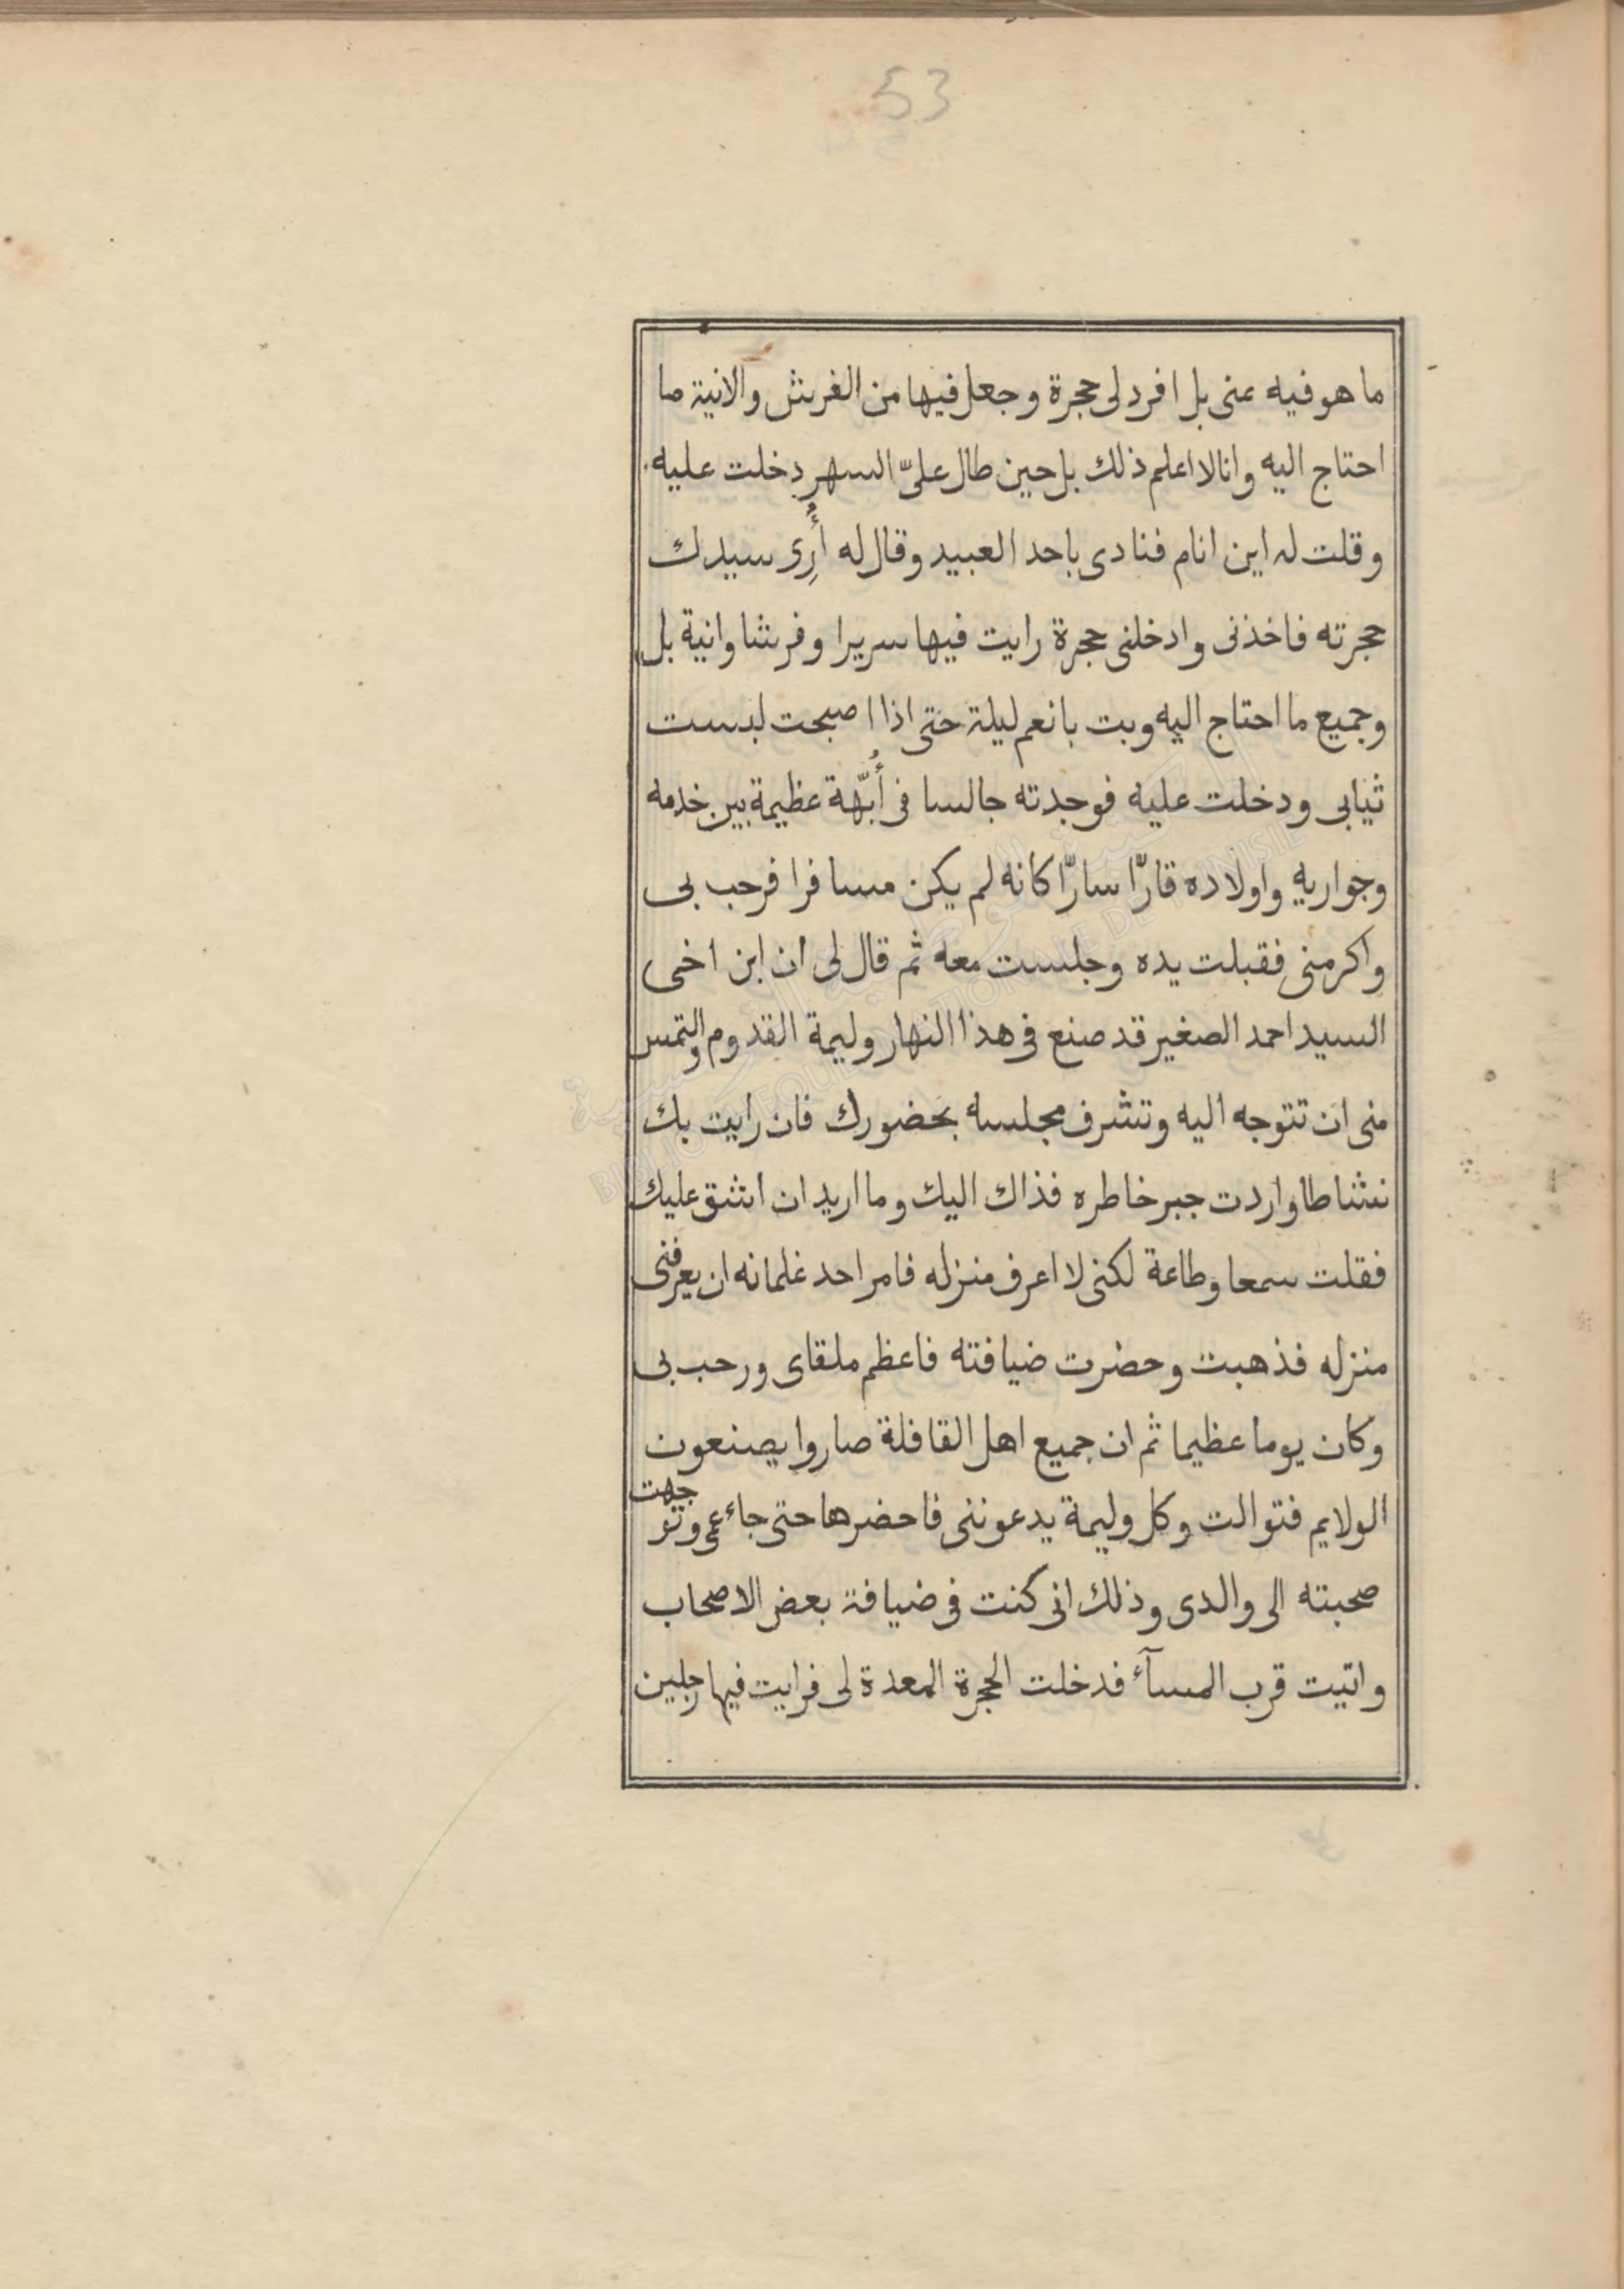 53
ما هو فيه عنى بل افرد لى حجرة وجعل فيها من الفرش والانية ما
احتاج اليه وانا لا اعلم ذلك بل حين طال علىّ السهر دخلت عليه
وقلت له اين انام فنادى باحد العبيد وقال له أَرِى سيدك
حجرته فاخذنى وادخلنى حجرة رايت فيها سريرا وفرشا وانية بل
وجميع ما احتاج اليه وبت بانعم ليلة حتى اذا اصبحت لبست
ثيابى ودخلت عليه فوجدته جالسا فى أُبَّهة عظيمة بين خدمه
وجواريه واولاده قارّا سارّا كانه لم يكن مسافرا فرحب بى
واكرمنى فقبلت يده وجلست معه ثم قال لى ان ابن اخى
السيد احمد الصغير قد صنع فى هذا النهار وليمة القدوم والتمس
منى ان تتوجه اليه وتشرف مجلسه بحضورك فان رايت بك
نشاطا واردت جبر خاطره فذاك اليك وما اريد ان اشق عليك
فقلت سمعا وطاعة لكنى لا اعرف منزله فامر احد غلمانه ان يعرفنى
منزله فذهبت وحضرت ضيافته فاعظم ملقاى ورحب بى
وكان يوما عظيما ثم ان جميع اهل القافلة صاروا يصنعون
الولايم فتوالت وكل وليمة يدعوننى فاحضرها حتى جاء عمى وتوجهت
صحبته الى والدى وذلك انى كنت فى ضيافة بعض الاصحاب
واتيت قرب المسآء فدخلت الحجرة المعدة لى فرايت فيها رجلين
BIBLIOTHEQUE NATIONALE DE TUNISIE